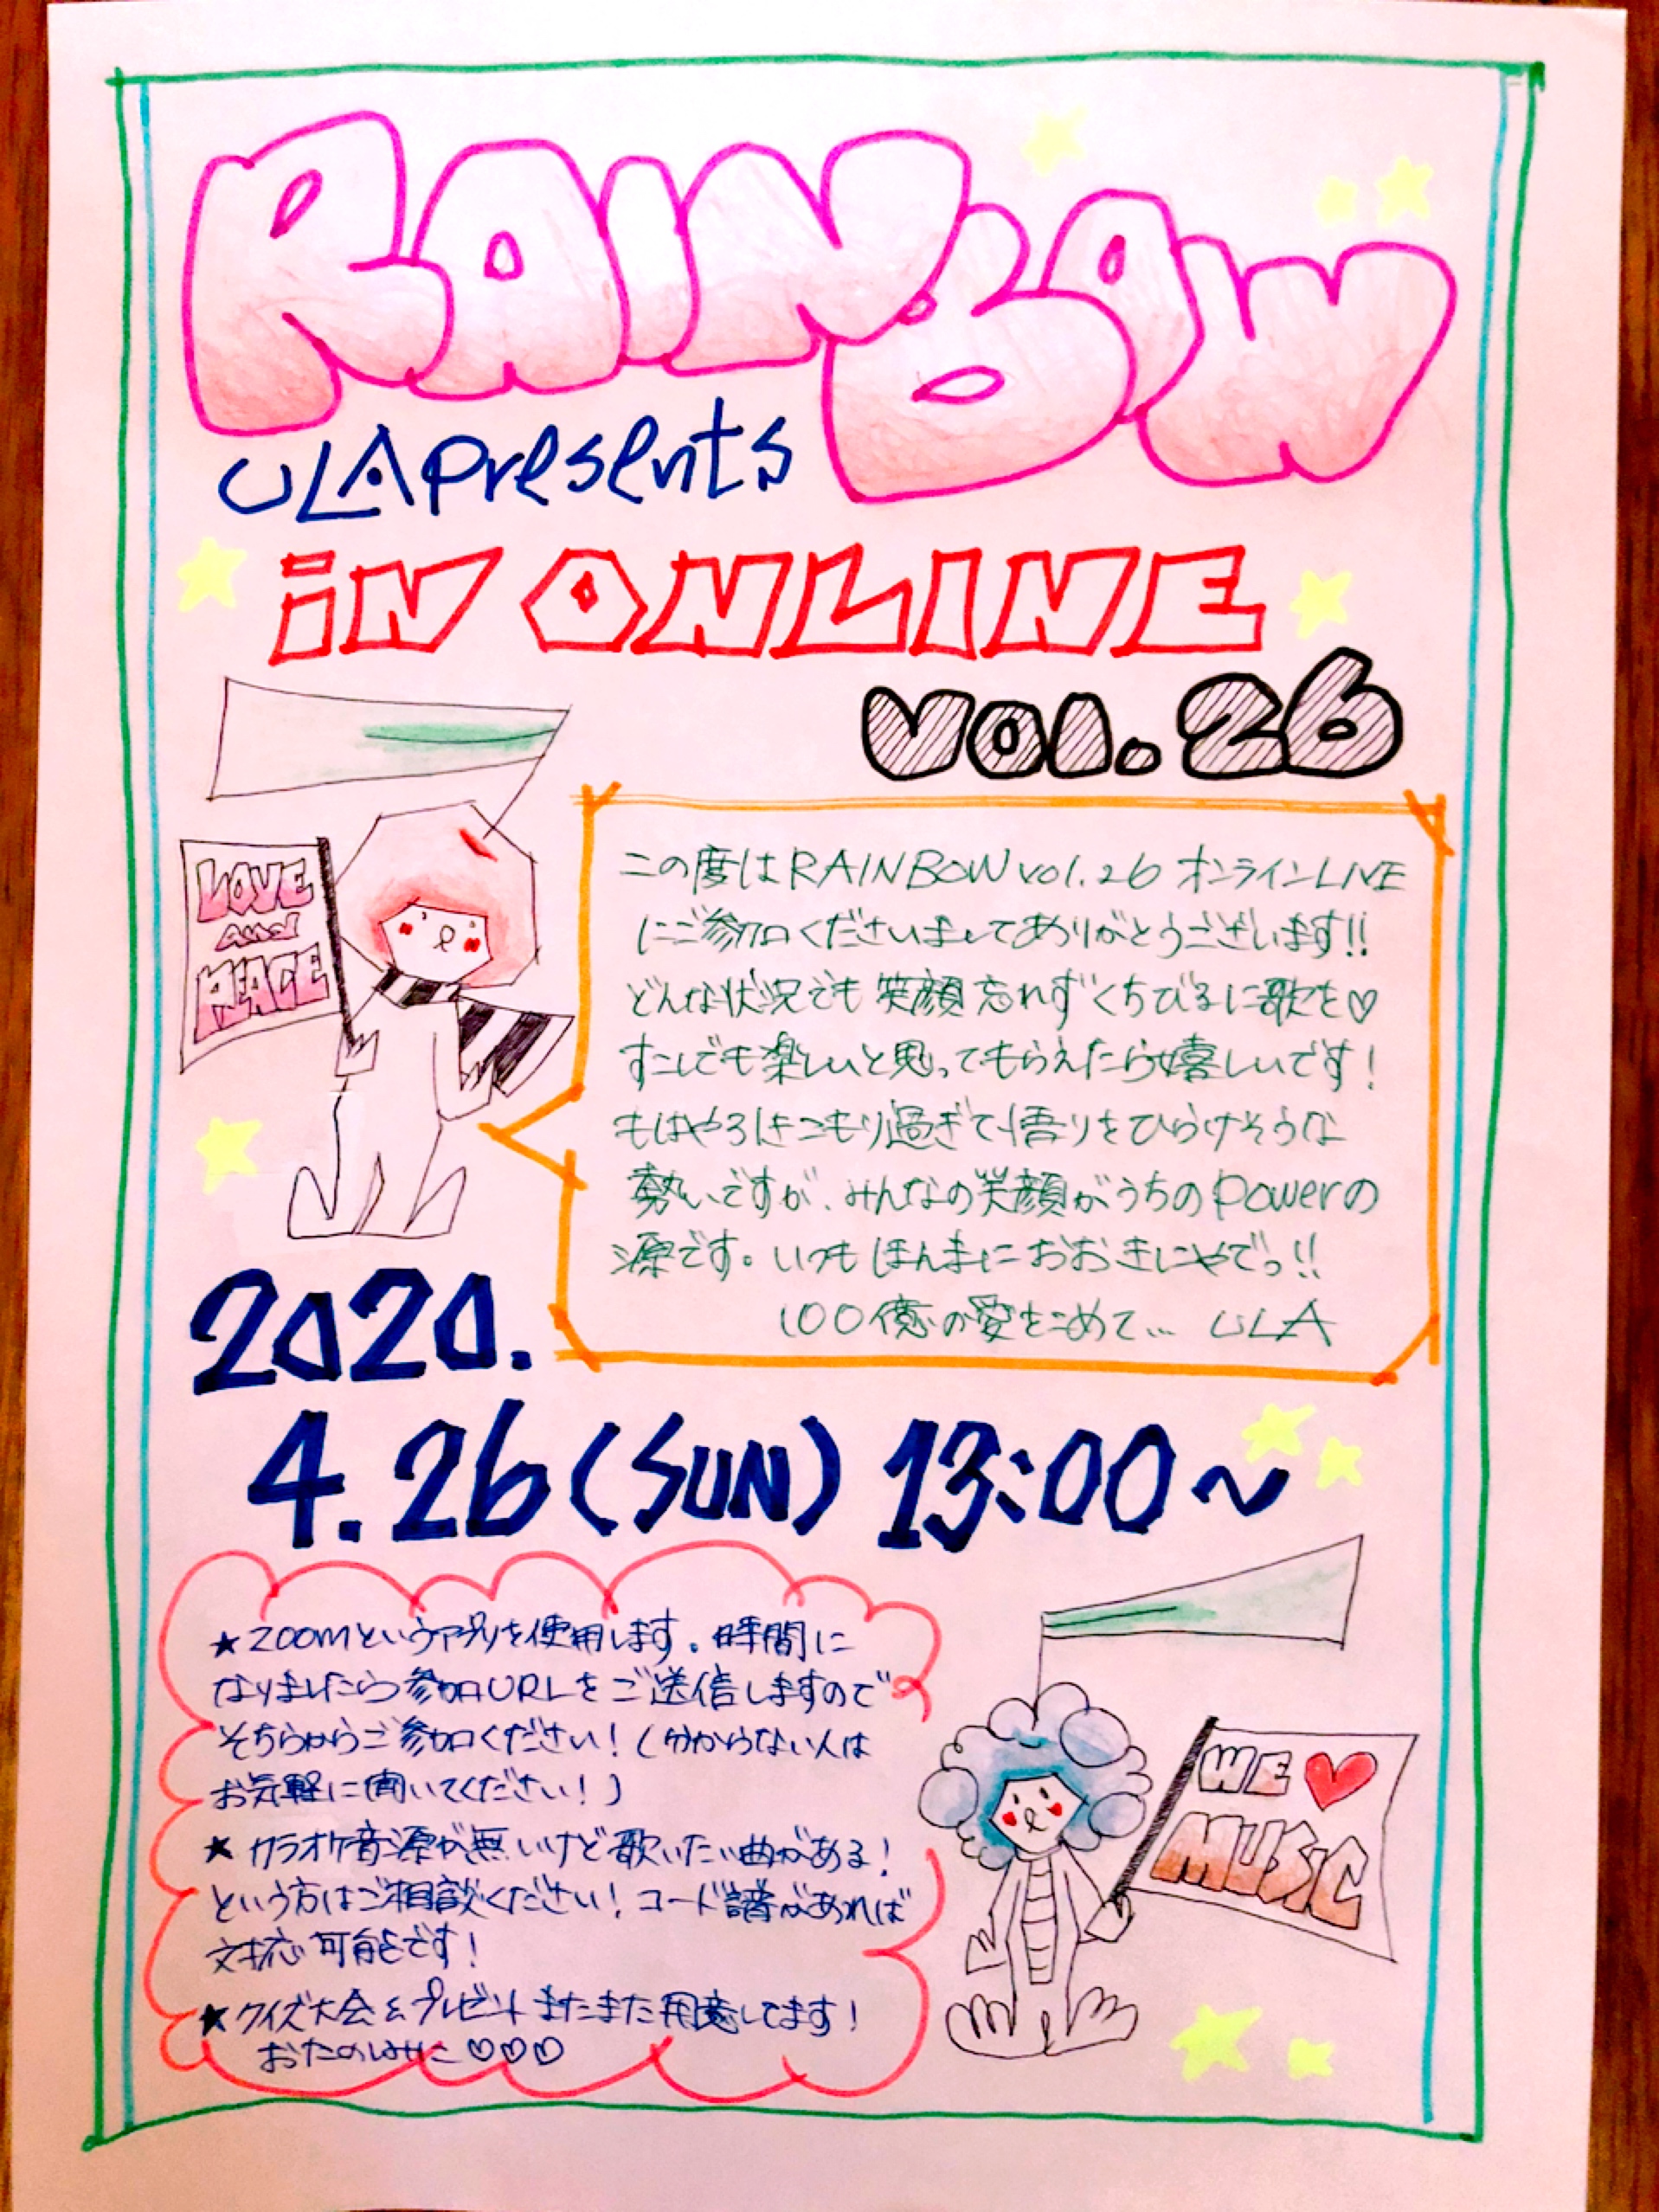 RAINBOW
ULA presents
iN ONLINE
VOL.26
LOVE
and
PEACE
この度はRAINBOW vol.26 オンラインLIVE
にご参加くださいましてありがとうございます!!
どんな状況でも笑顔忘れずくちびるに歌を♡
すこしでも楽しいと思ってもらえたら嬉しいです！
もはやひきこもり過ぎて悟りをひらけそうな
勢いですが、みんなの笑顔がうちのpowerの
源です。いつもほんまにおおきにやでっ!!
100億の愛をこめて… ULA
2020.
4.26(SUN) 13:00～
★ZOOMというアプリを使用します。時間に
なりましたら参加URLをご送信しますので
そちらからご参加ください！(分からない人は
お気軽に聞いてください！)
★カラオケ音源が無いけど歌いたい曲がある！
という方はご相談ください！コード譜があれば
対応可能です！
★クイズ大会&プレゼントまたまた用意してます！
おたのしみに♡♡♡
WE ♥
MUSIC